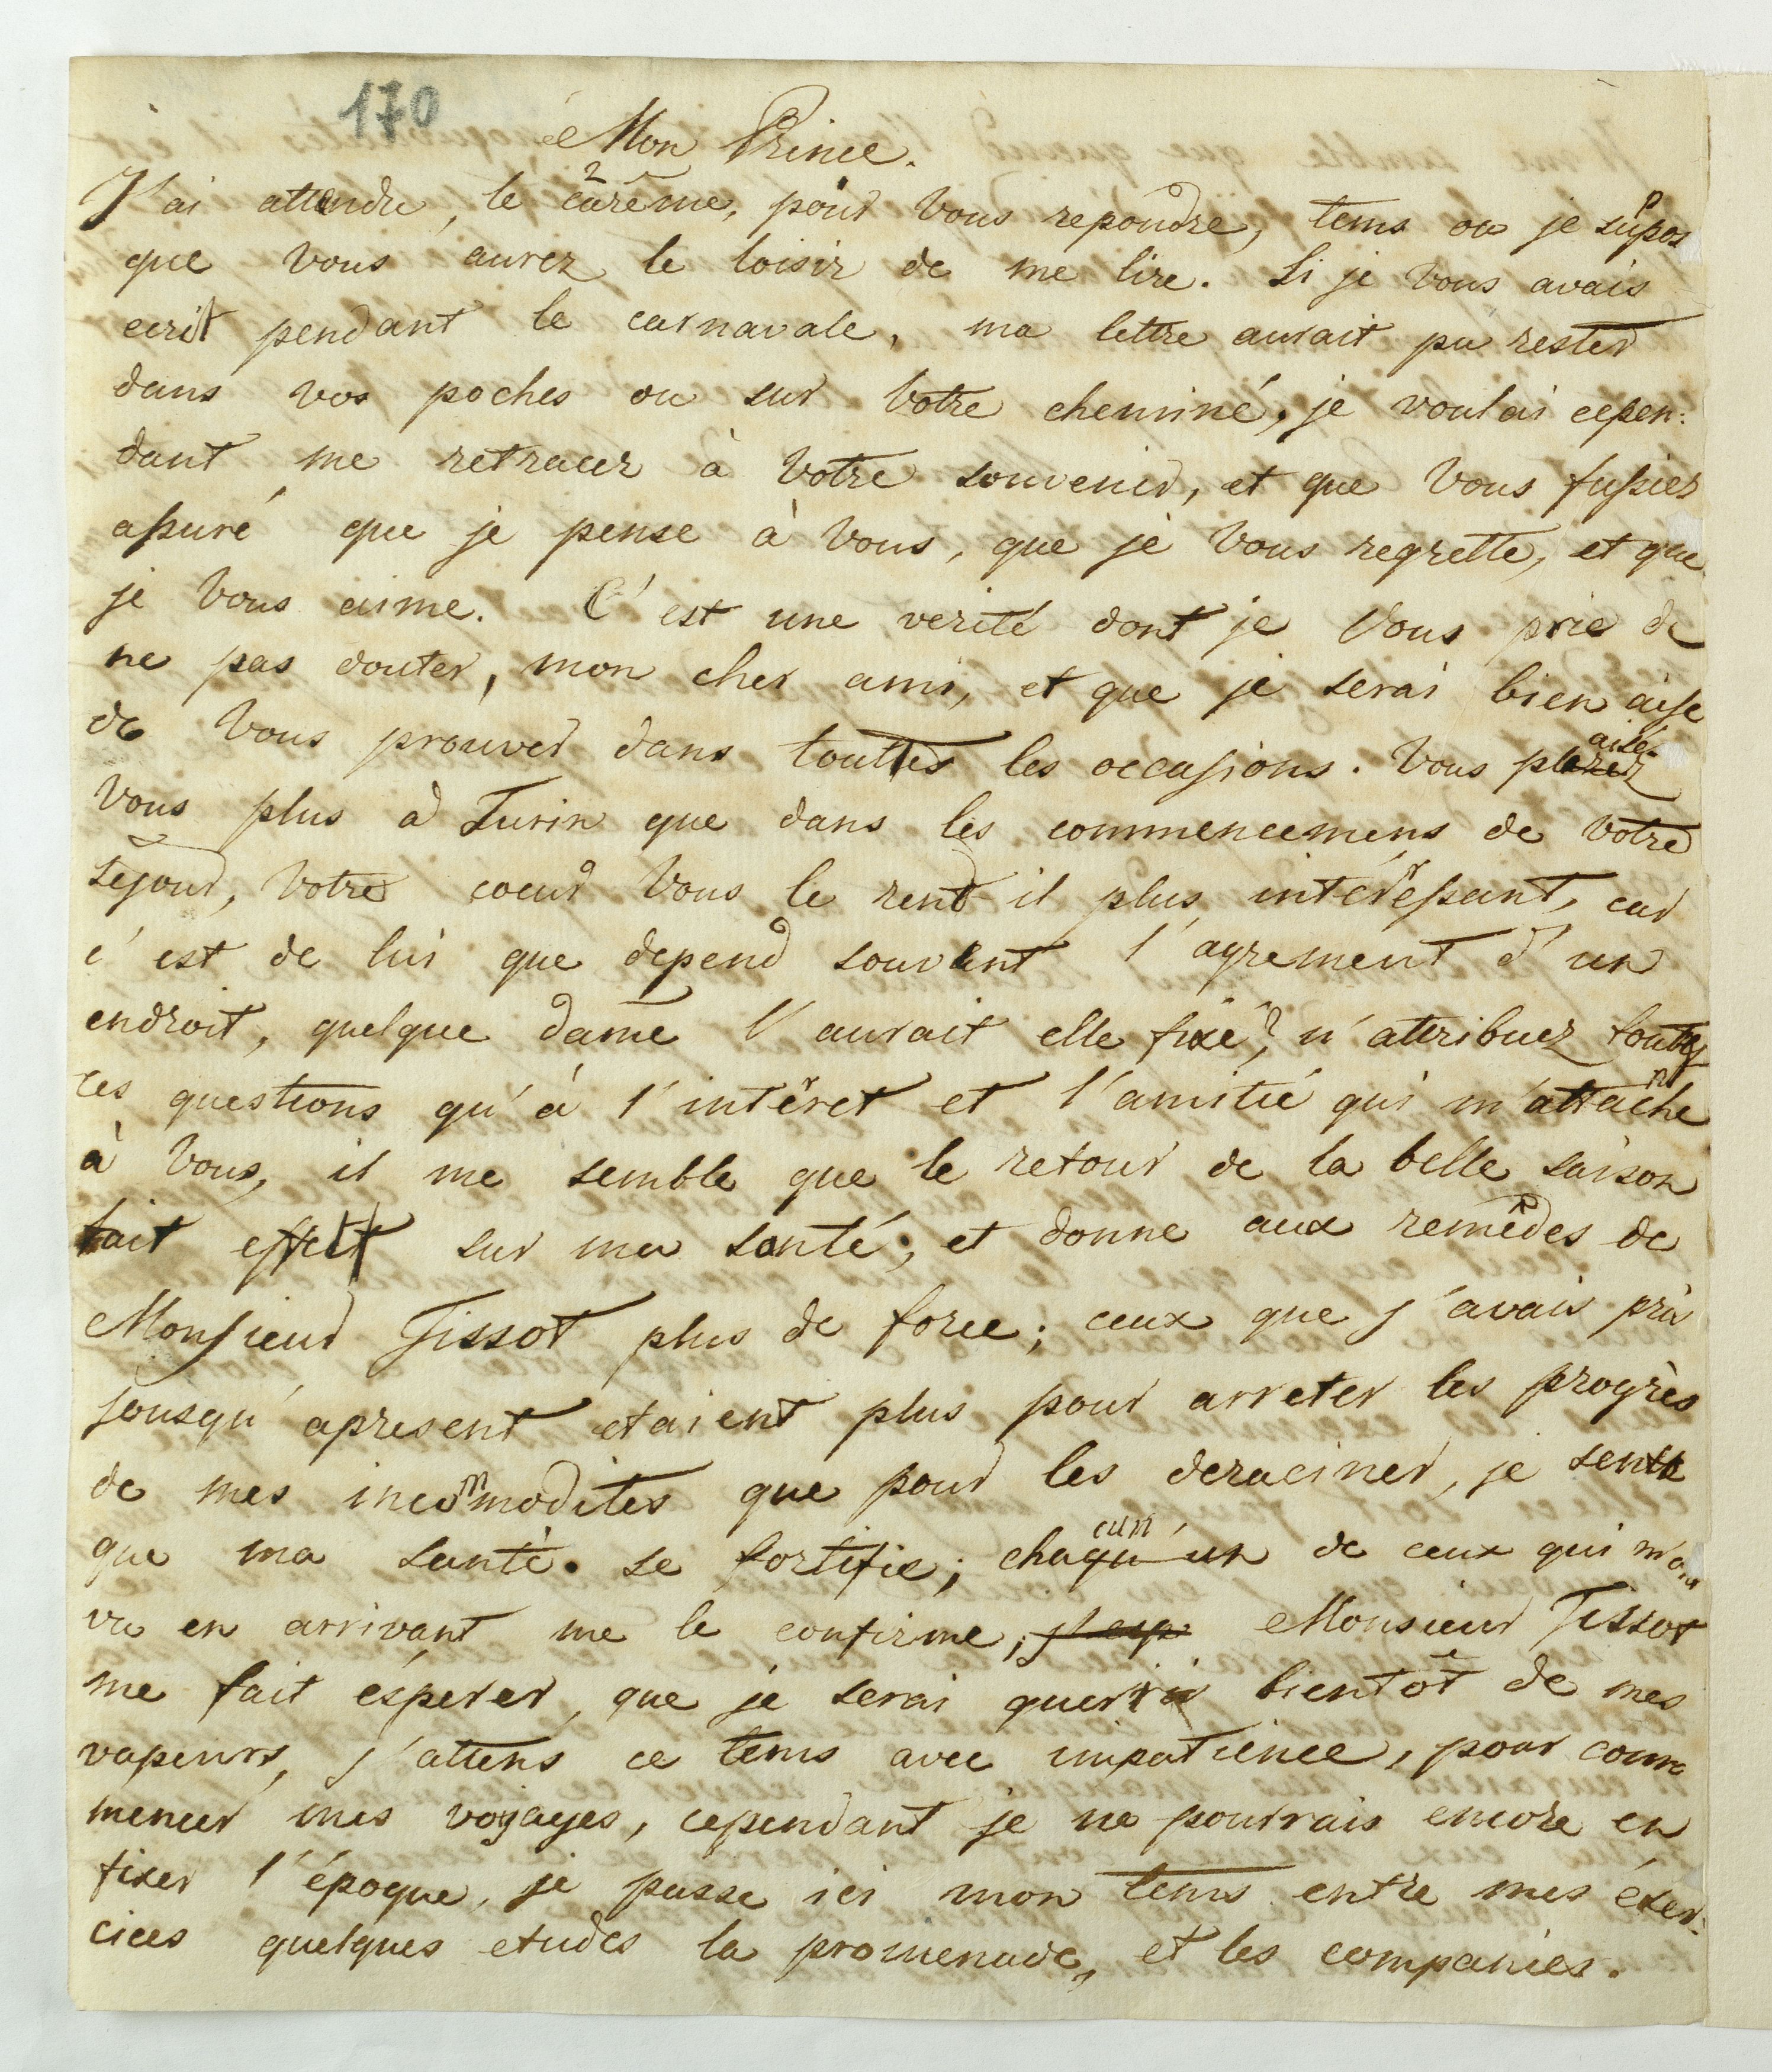 170
Mon Prince.
J'ai attendu, le carême, pour vous repondre, tems ou je supos
que vous aurez le loisir de me lire. Si je vous avais
ecrit pendant le carnavale, ma lettre aurait pu rester
dans vos poches ou sur votre cheminé, je voulai cepen:
dant me retracer à votre souvenir, et que vous fussiez
assuré que je pense à vous, que je vous regrette, et que
je vous aime. C'est une verité dont je vous prie de
ne pas douter, mon cher ami, et que je serai bien aise
de vous prouver dans touttes les occasions. Vous plaisé
vous plus à Turin que dans les commencemens de votre
séjour, votre coeur vous le rend il plus intéressant, car
c'est de lui que depend souvent l'agrement d'un
endroit, quelque dame l'aurait elle fixé? n'attribuez toutes
ces questions qu'à l'intêret et l'amitié qui m'attache
à vous, il me semble que le retour de la belle saison
fait effet sur ma santé, et donne aux remêdes de
Monsieur Tissot plus de force; ceux que j'avais pris
jousqu'apresent etaient plus pour arreter les progrès
de mes incommodités que pour les deraciner, je sens
que ma santé se fortifie; chacun de ceux qui m'ont
vu en arrivant me le confirme, j'esp Monsieur Tissot
me fait éspérer, que je serai querri bientôt de mes
vapeurs, j'attens ce tems avec impatience, pour com
mencer mes voyages, cependant je ne pourrais encore en
fixer l'époque, je passe ici mon tems entre mes éxer:
cices quelques etudes la promenade, et les companies.